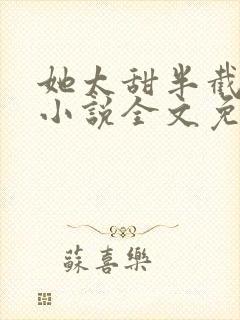 她太甜半截
小说全文免
蘇喜樂